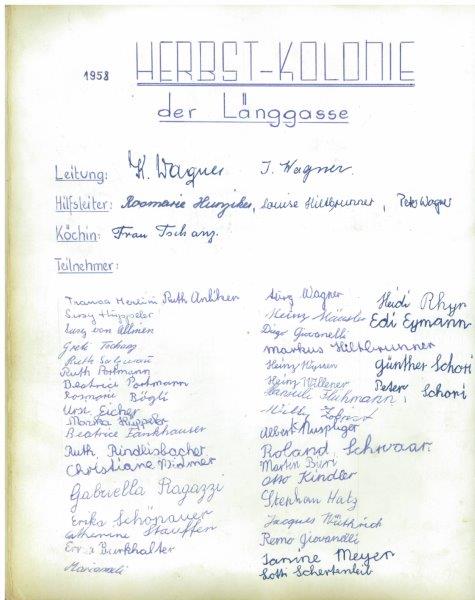 1958 HERBST-KOLONIE
der Länggasse
Leitung: K. Wagner J. Wagner.
Hilfsleiter: Rosmarie Hunziker, Louise Hiltbrunner, Peter Wagner
Köchin: Frau Tschanz.
Teilnehmer:
Ruth Anliker
Susy Hüppeler
Susy von Allmen
Greti Tschanz
Ruth
Ruth Portmann
Beatrice Portmann
Rosmarie Bögli
Urs Eicher
Marika Hüppeler
Beatrice Fankhauser
Ruth Rindlisbacher
Christiane Widmer
Gabriella Ragazzi
Erika Schönauer
Catherine Stauffer
Erika Burkhalter
Jürg Wagner
Heinz Häusler
Diego Giovanelli
Markus Hiltbrunner
Heinz Nyfeler
Heinz Willener
Daniele Fluhmann
Willy Zobrist
Albert Ruspliger
Roland Schwaar
Martin Büri
Otto Kindler
Stephan Hatz
Jacques Wüthrich
Remo Giovanelli
Janine Meyer
Lotti Schertenleib
Heidi Rhyn
Edi Eymann
Günther Schori
Peter Schori